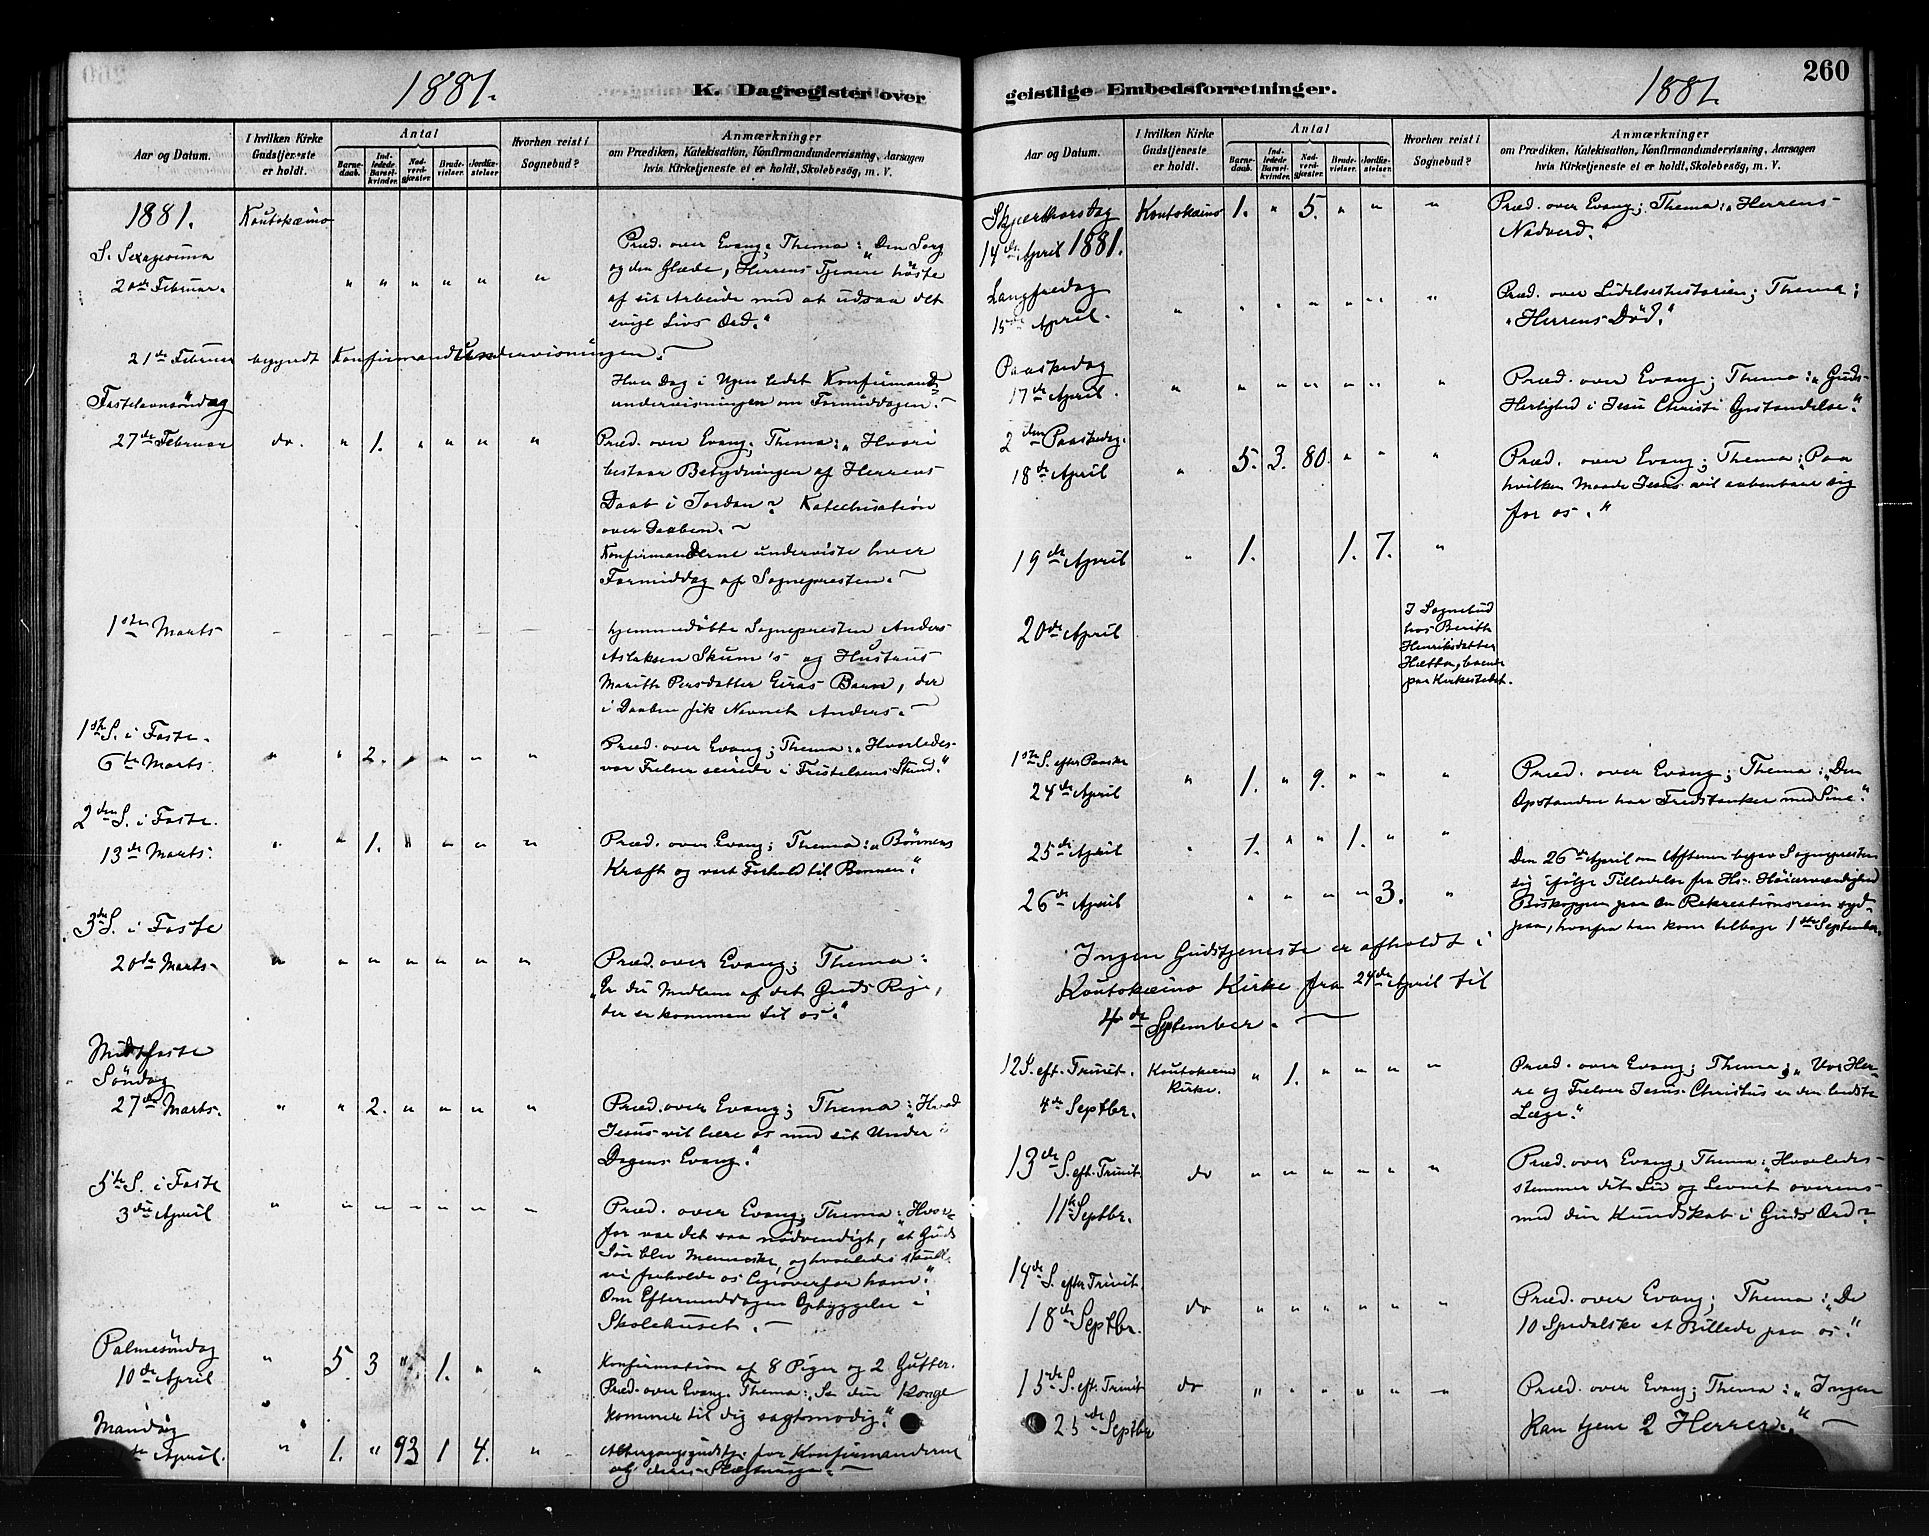 1881.
K. Dagregister over
Aar og Datum.
I hvilken Kirke Gudstjeneste er holdt.
Antal
Barnedaab.
Indledede Barselkvinder.
Nadverdgjæster.
Brudevielser.
Jordfæstelser.
Hvorhen reist i Sognebud?
Anmærkninger
om Prædiken, Katekisation, Konfirmandundervisning, Aarsagen
hvis Kirketjeneste ei er holdt, Skolebesøg, m. V.
1881. Koutokæino
S. Sexagesima
20de Februar. " " " " " "
Præd. over Evang; Thema: "Den Sorg
og den Glæde, Herrens Tjenere høste
af sit Arbeide med at udsaa det
evige Livs Ord."
21de Februar begyndt Konfirmandundervisningen.
Hver Dag i Ugen ledet Konfirmand-
undervisningen om Formiddagen.
Fastelavnsöndag
27de Februar do. " 1. " " " "
Præd. over Evang; Thema: "Hvori
bestaar Betydningen af Herrens
Daab i Jordan? Katechisation
over Daaben.
Konfirmanderne underviste hver
Formiddag af Sognepresten.
1ste Marts - - - - - - -
hjemmedöbte Sognepresten Anders
Aslaksen Skum's og Hustrus
Marith Persdatter Eiras Barn, der
i Daaben fik Navnet Anders.
1ste S. i Faste.
6te Marts " " 2. " " " "
Præd. over Evang; Thema: "Hvorledes
vor Frelser seirede i Fristelsens Stund."
2den S. i Faste.
13de Marts. " " 1. " " " "
Præd. over Evang; Thema: "Bønnens
Kraft og vort Forhold til Bønnen."
3die S. i Faste
20de Marts " " " " " " "
Præd. over Evang; Thema:
"Er du Medlem af det Guds Rige,
der er kommen til os."
Midtfaste
Söndag
27de Marts. " " 2. " " " "
Præd. over Evang; Thema: "Hvad
Jesus vil lære os med sit Under i
Dagens Evang."
5te S. i Faste
3die April " " " " " " "
Præd. over Evang; Thema: "Hvor-
for var det saa nødvendigt, at Guds
Sön blev Menneske, og hvorledes skulle
vi forholde os ligeoverfor ham."
Om Eftermiddagen Opbyggelse i
Skolehuset.
Palmesöndag
10de April " 5. 3 " 1. " "
Konfirmation af 8 Piger og 2 Gutter.
Præd. over Evang. Thema: "Se din Konge
kommer til dig sagtmodig."
Mandag
April. " 1. " 93 1 4. "
Altergangsgudstj. for Konfirmanderne
og deres Slægtninge.
geistlige Embedsforretninger.
1881.
260
Aar og Datum.
I hvilken Kirke Gudstjeneste er holdt.
Antal
Barnedaab.
Indledede Barselkvinder.
Nadverdgjæster.
Brudevielser.
Jordfæstelser.
Hvorhen reist i Sognebud?
Anmærkninger
om Prædiken, Katekisation, Konfirmandundervisning, Aarsagen
hvis Kirketjeneste ei er holdt, Skolebesøg, m. V.
Skjærthorsdag Koutokæino 1. " 5. " " "
14de April 1881.
Præd. over Evang; Thema: "Herrens
Nadverd."
Langfredag
15de April. " " " " " " "
Præd. over Lidelseshistorien; Thema:
"Herrens Död."
Paaskedag
17de April. " " " " " " "
Præd. over Evang; Thema: "Guds
Herlighed i Jesu Christi Opstandelse."
2den Paaskedag.
18de April " 5. 3. 80. " " "
Præd. over Evang; Thema: "Paa
hvilken Maade Jesus vil aabenbare sig
for os."
19de April " 1. 1. 7. "
20de April
I Sognebud
hos Berith
Henriksdatter
Hætta, boende
paa Kirkestedet.
1ste S. efter Paaske
24de April " 1. " 9. " " "
Præd. over Evang; Thema: "Den
Opstandne har Fredstanker med Sine."
25de April " 1. " " 1. " "
26de April " " " " 3. "
Den 26de April om Aftenen begav Sognepresten
sig ifølge Tilladelse fra Hs. Höiærværdighed
Biskoppen paa en Rekreationsreise syd-
paa, hvorfra han kom tilbage 1ste September.
Ingen Gudstjeneste er afholdt i
Koutokæino Kirke fra 24de April til
4de September.
12 S. eft. Trinit. Koutokæino Kirke. " 1. " " " "
4de Septbr.
Præd. over Evang; Thema: "Vor Her-
re og Frelser Jesus Christus er den bedste
Læge."
13de S. eft. Trinit. do " " " " " "
11te Septbr.
Præd. over Evang; Thema: "Hvorledes
stemmer dit Liv og Levnet overens
med din Kundskab i Guds Ord?
14de S. efter Trinit.
18de Septbr. do " " " " " "
Præd. over Evang; Thema: "De
10 Spedalske et Billede paa os."
15de S. eft. Trinit do " " " " " "
25de Septbr
Præd. over Evang; Thema: "Ingen
kan tjene 2 Herrer."